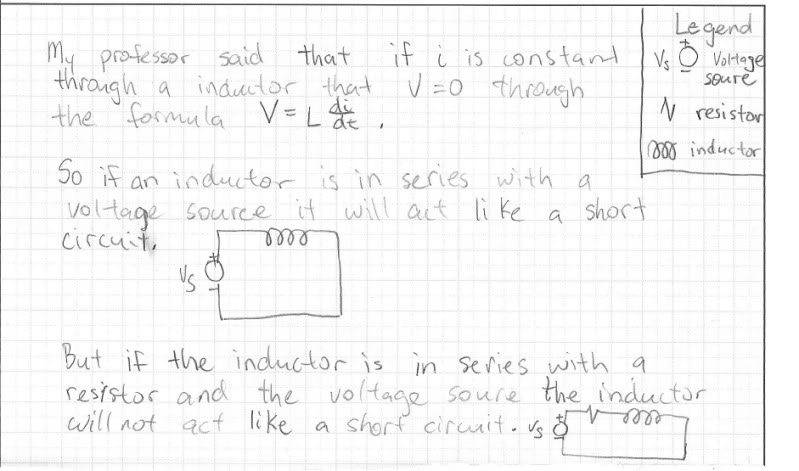 My professor said that if i is constant
through a inductor that V=0 through
the formula V = L di/dt .
So if an inductor is in series with a
voltage source it will act like a short
circuit.
Vs
+
-
But if the inductor is in series with a
resistor and the voltage soure the inductor
will not act like a short circuit. Vs
+
-
Legend
Vs + - Voltage
soure
resistor
inductor